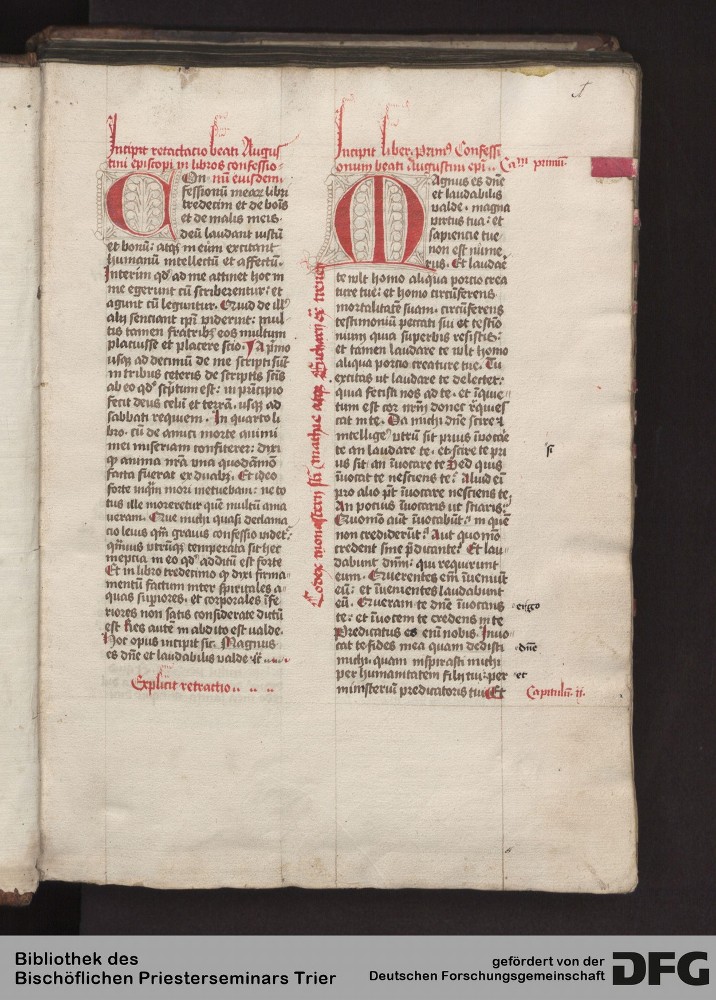 Incipit retractacio beati Augus
tini episcopi in libros confessio-
num eiusdem.
Con
fessionū meaꝝ libri
tredecim et de boīs
et de malis meis.
deū laudant iustū
et bonū: atqꝫ in eūm excitant
humanū intellectū et affectū.
Interim qđ ad me attinet hoc in
me egerunt cū scriberentur: et
agunt cū leguntur. Quid de ill'
alij senciant ip̄i viderint: mul
tis tamen fratribꝫ eos multum
placuisse et placere scio. A p̄mo
usqꝫ ad decimū de me scripti sūt
in tribus ceteris de scriptis scīs
ab eo qđ sc̄ptum est: in principio
fecit deus celū et terrā. usqꝫ ad
sabbati requiem. In quarto li
bro. cū de amici morte animi
mei miseriam confiterer: dixi
ꝙ anima nr̄a vna quodāmō
facta fuerat ex duabꝫ. Et ideo
forte inqͫm mori metuebam: ne to
tus ille moreretur quē multū ama
veram. Que michi quasi declama
cio leuis qͫm grauis confessio videt᷑.
qͫmuis vtrūqꝫ temperata sit hec
ineptia in eo qđ additū est forte
Et in libro tredecimo ꝙ dixi firma-
mentū factum inter spiritales a-
quas suꝑiores. et corporales īfe
riores non satis considerate dictū
est Res autē in abdito est valde.
Hoc opus incipit sic. Magnus
es dn̄e et laudabilis valde ⁊c̄
Explicit retractio..
Codex monasterij sc̄i mathie atqꝫ Eucharij ex̄ treueꝝ
A
Incipit Liber. Prim9 Confessi
onum beati Augustini ep̄i..
Caᵐ primū
Magnus es dn̄e
et laudabilis
valde. magna
virtus tua: et
sapiencie tue
non est nume
rus. Et laudar̄
te wlt homo aliqua porcio crea
ture tue: et homo circūferens
mortalitatē suam. circūferens
testimoniū peccati sui et testīo
nium quia superbis resistis:
et tamen laudare te wlt homo
aliqua porcio creature tue. Tu
excitas ut laudare te delectet:
quia fecisti nos ad te. et īquie-
tum est cor nr̄m donec r̄quies
cat in te. Da michi dn̄e scire ⁊
intelligē vtrū sit prius īuocare
te an laudare te. et scire te pri
us sit: an īuocare te Sed quis
īuocat te nesciens te? Aliud eī
pro alio pt̄ īuocare nesciens te
An pocius īuocaris ut sciaris?
Quomō aūt īuocabūt: in quē
non crediderūt? Aut quomō
credent sine p̄dicante? Et lau-
dabunt dnm̄: qui requirunt
eum. Querentes em̄ īuenīut
eū: et īuenientes laudabunt
eū. Queram te dn̄e īuocans
te: et īuocem te credens in te
Predicatus es enī nobis. Inuo
cat te fides mea quam dedisti
michi. quam inspirasti michi
per humanitatem filij tui: per
ministeriū predicatoris tui Et
si
ergo
dn̄e
et
Capitulū ij.
Bibliothek des
Bischöflichen Priesterseminars Trier
gefördert von der
Deutschen Forschungsgemeinschaft
DFG